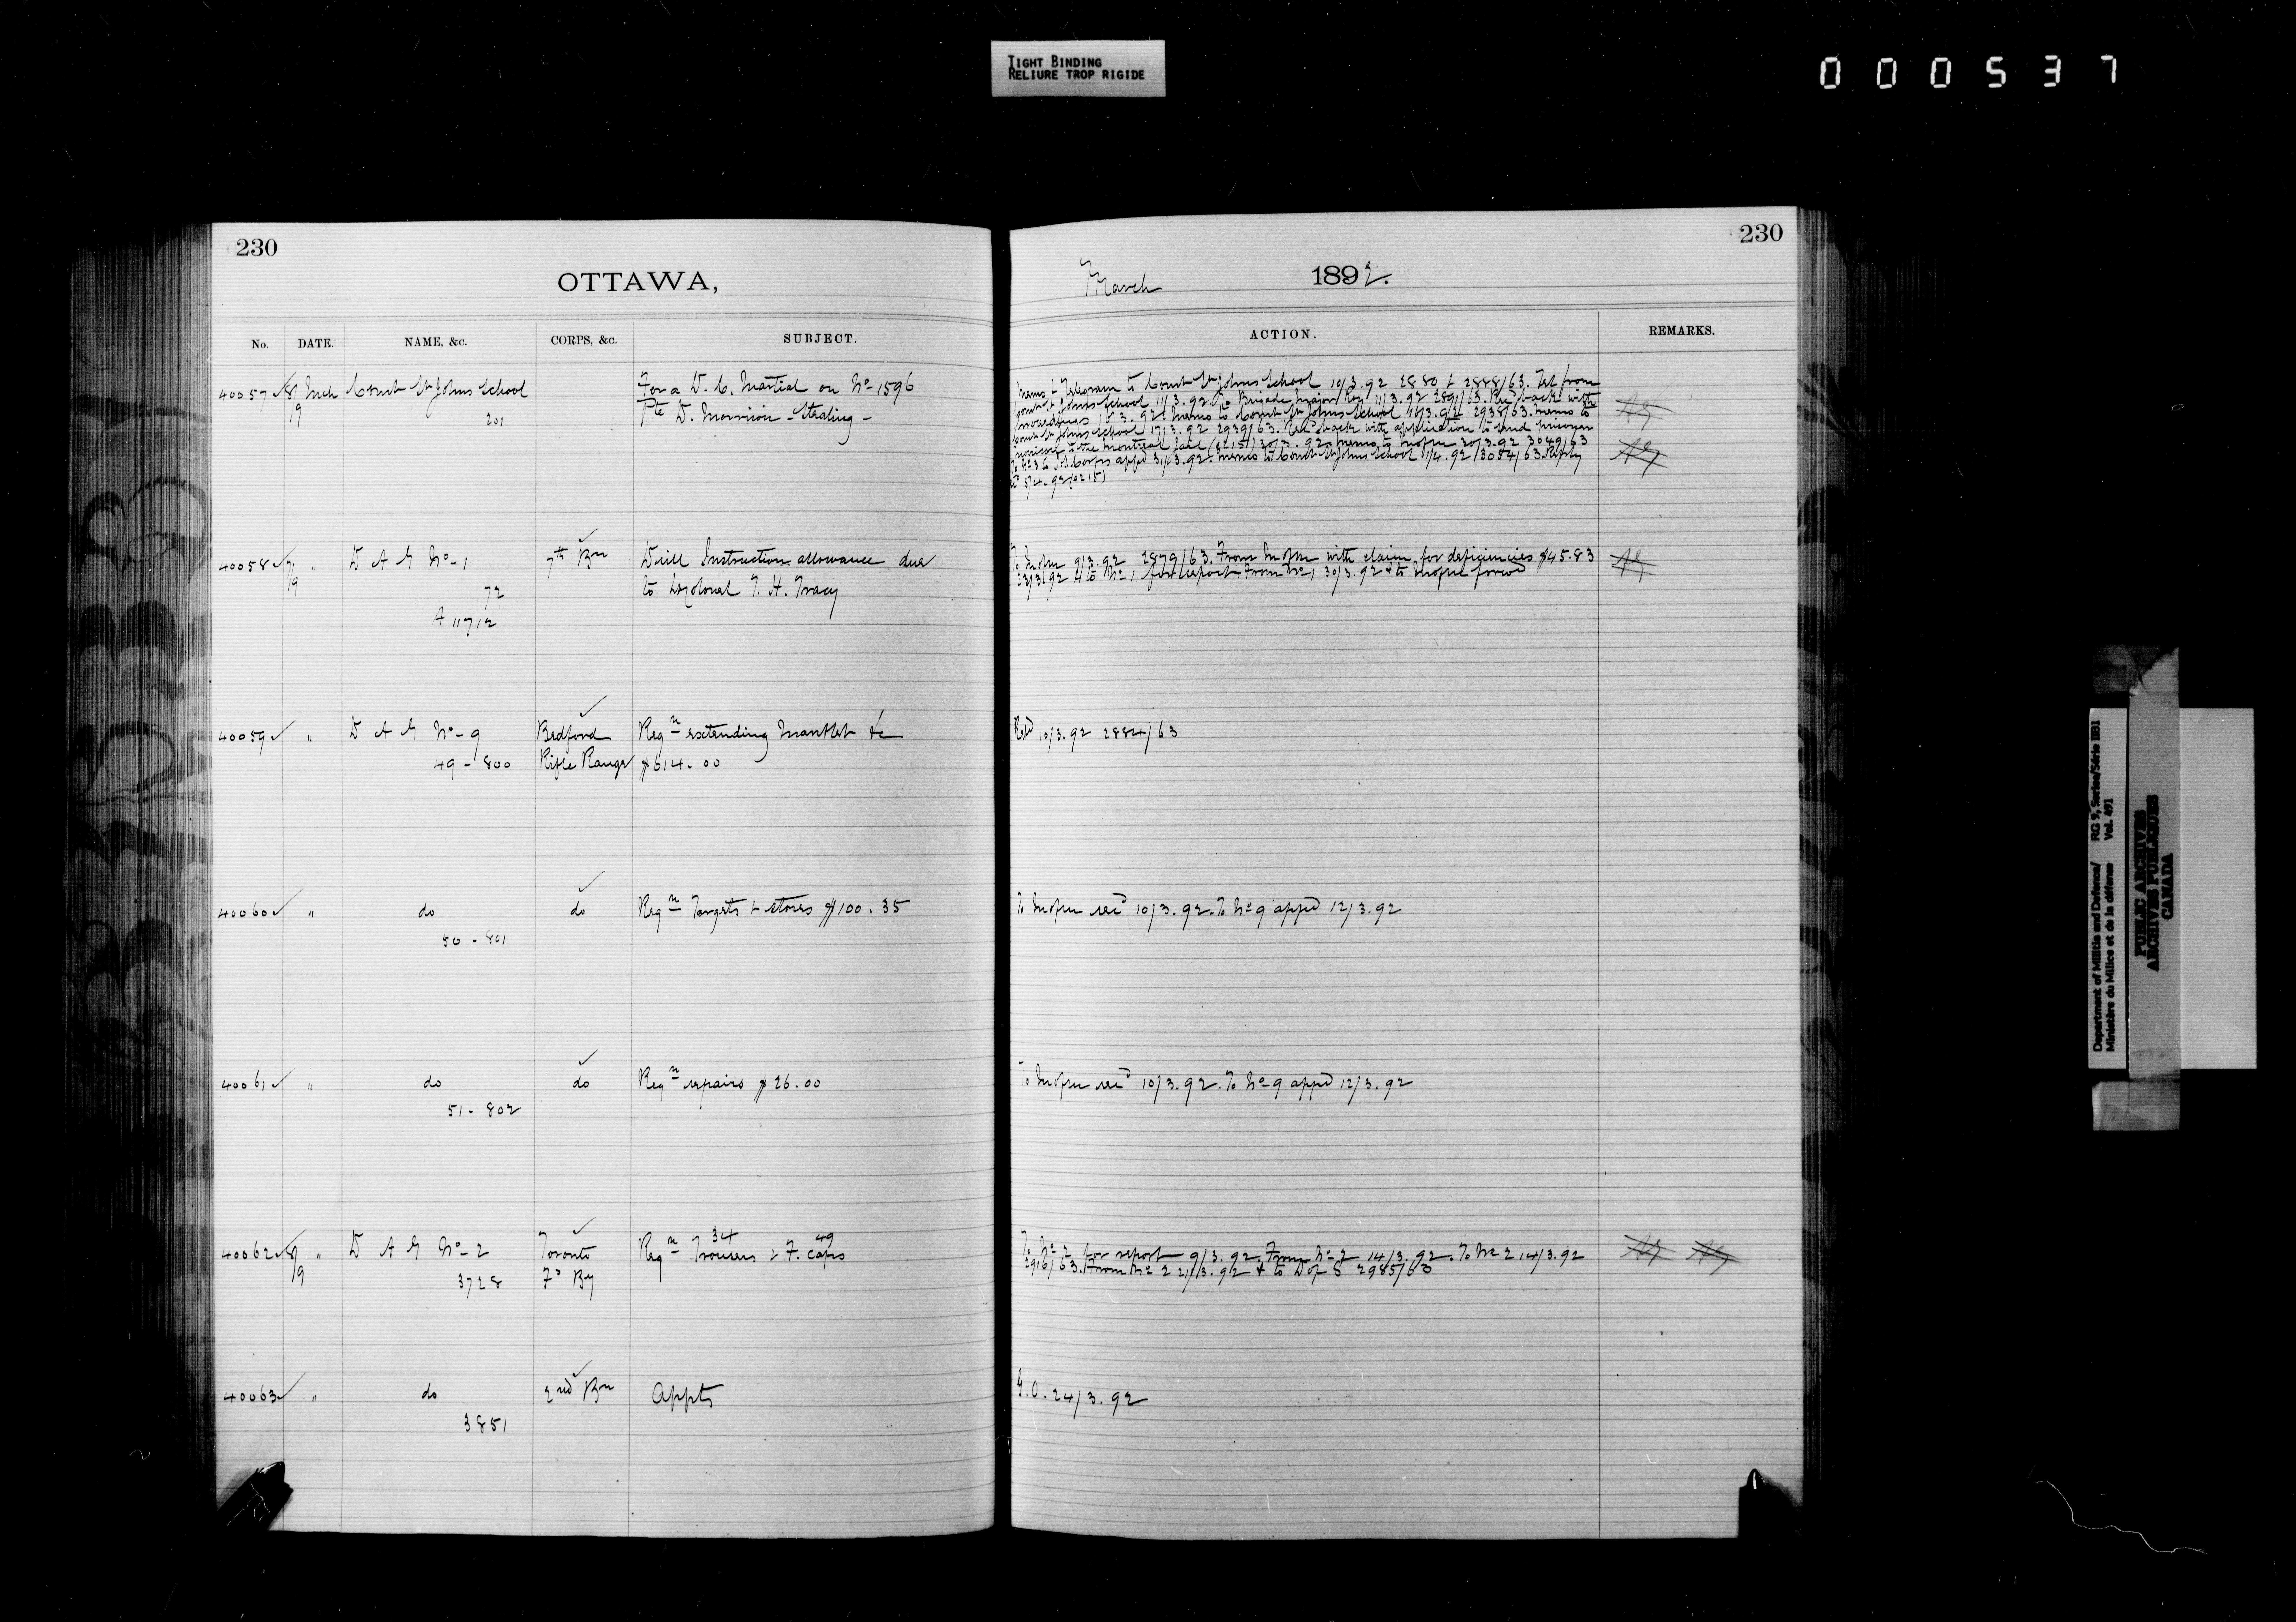 TIGHT BINDING
RELIURE TROP RIGIDE
000537
230
OTTAWA,
No. DATE. NAME, &c. CORPS, &c. SUBJECT.
40057 8/9 Mch Comdt St Johns School For a D. C. Martial on No 1596
201 Pte D. Morrison - Stealing -
40058 7/9 " D A G No-1 7th Bn Drill Instruction allowance due
72 to Lt Colonel T. H. Tracy
A 11712
40059 " D A G No-9 Bedford Reqn extending Mantlet &c
49 - 800 Rifle Range $614.00
40060 " do do Reqn Targets & stores $100.35
50 - 801
40061 " do do Reqn repairs $26.00
51 - 802
34 49
40062 8/9 " D A G No-2 Toronto Reqn Trousers & F. Caps
3728 Fd By
40063 " do 2nd Bn Appts
3851
230
March 1892.
ACTION. REMARKS.
Memo & Telegram to Comdt St Johns School 10/3.92 2880 & 2888/63. Tel from
Comdt St Johns School 11/3.92 To Brigade Major Roy 11/3.92 2891/63. Recd back with
3.92. Memo to Comdt St Johns School 16/3.92 2938/63. Memo to
Comdt St Johns School 17/3.92 2939/63. Recd back with application to send prisoner
to the Montreal Jail 30/3.92 memo to 30/3.92 3049/63
appd 31/3.92. Memo to Comdt St Johns School 1/4.92 3054/63. Reply
5/4.92 (0215)
9/3.92 2879/63. From with claim for deficiencies $45.83
23/3/92 & to No 1 for report. From No 1 30/3.92 & to forwd
Refd 10/3.92 2884/63
To recd 10/3.92. To No 9 appd 12/3.92
To recd 10/3.92. To No 9 appd 12/3.92
To No 2 for report 9/3.92. From No 2 14/3.92. To No 2 14/3.92
2916/63. From No 2 21/3.92 & to D of S 2985/63
G.O. 24/3.92
Department of Militia and Defence/ RG 9, Series/Série IIB1
Ministère du Milice et de la défense Vol. 491
PUBLIC ARCHIVES
ARCHIVES PUBLIQUES
CANADA